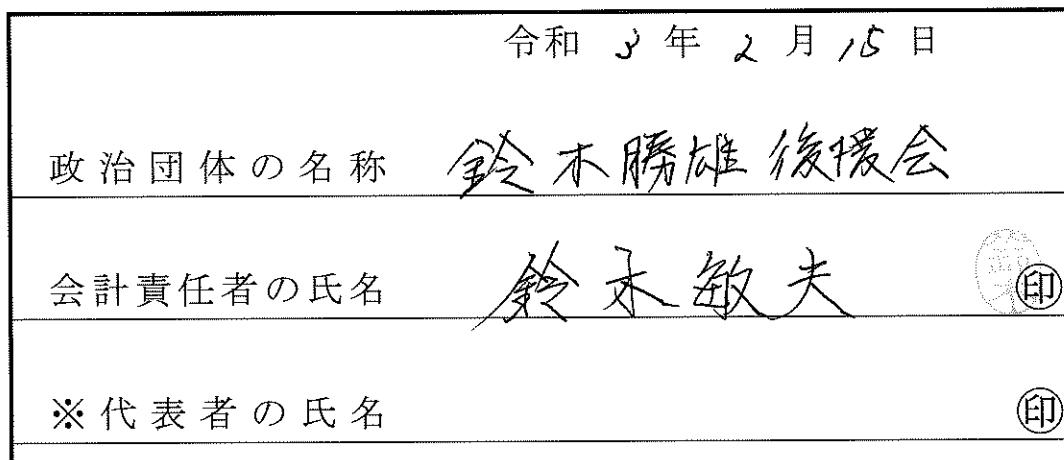 令和 3 年 2 月 15 日
政治団体の名称 鈴木勝雄後援会
会計責任者の氏名 鈴木敏夫 ㊞
※代表者の氏名 ㊞